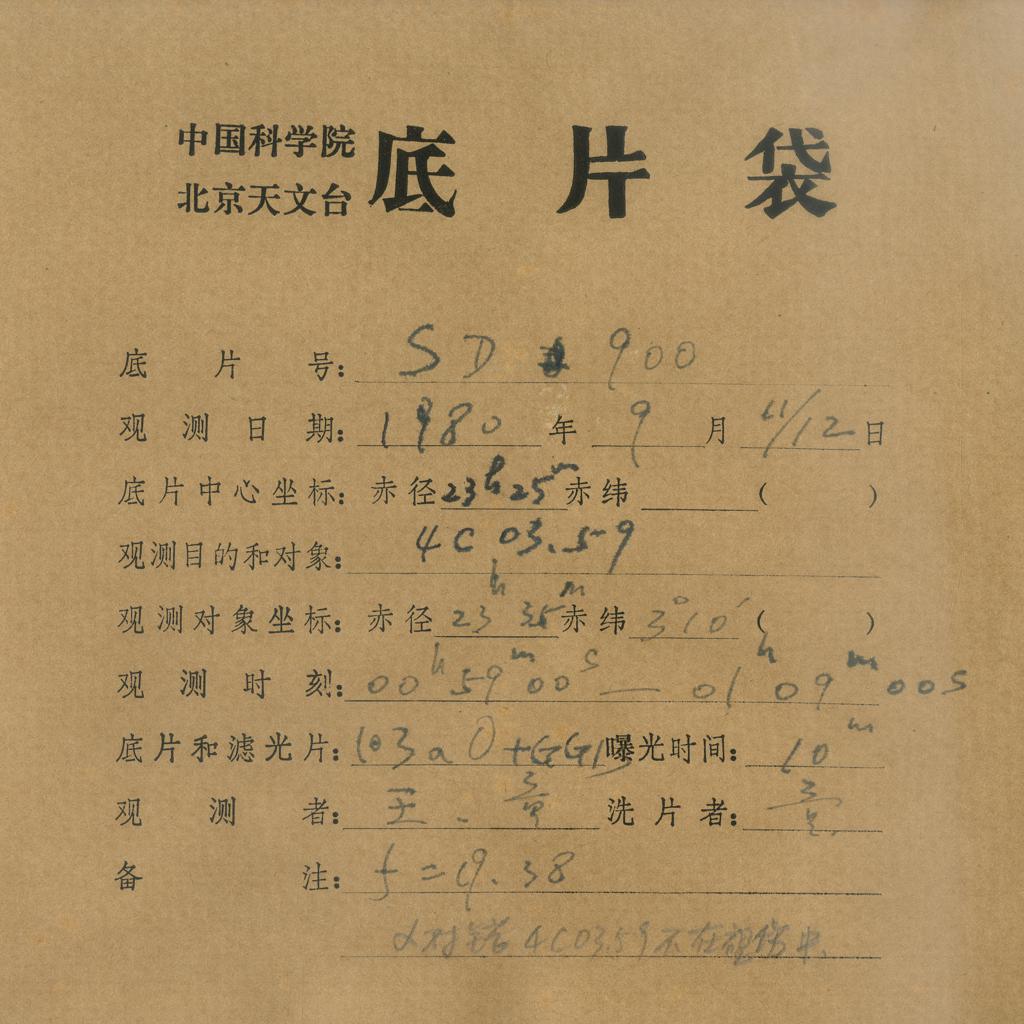 中国科学院
北京天文台
底片袋
底片号: SD 900
观测日期: 1980年 9月 11/12日
底片中心坐标: 赤径 23h25m 赤纬 ( )
观测目的和对象: 4C 03.59
观测对象坐标: 赤径 23h 35m 赤纬 3°10′ ( )
观测时刻: 00h 59m 00s — 01h 09m 00s
底片和滤光片: 103aO+GG13 曝光时间: 10m
观测者: 王. 洗片者:
备注: f=19.38
α对错 4C03.59不在视场中.